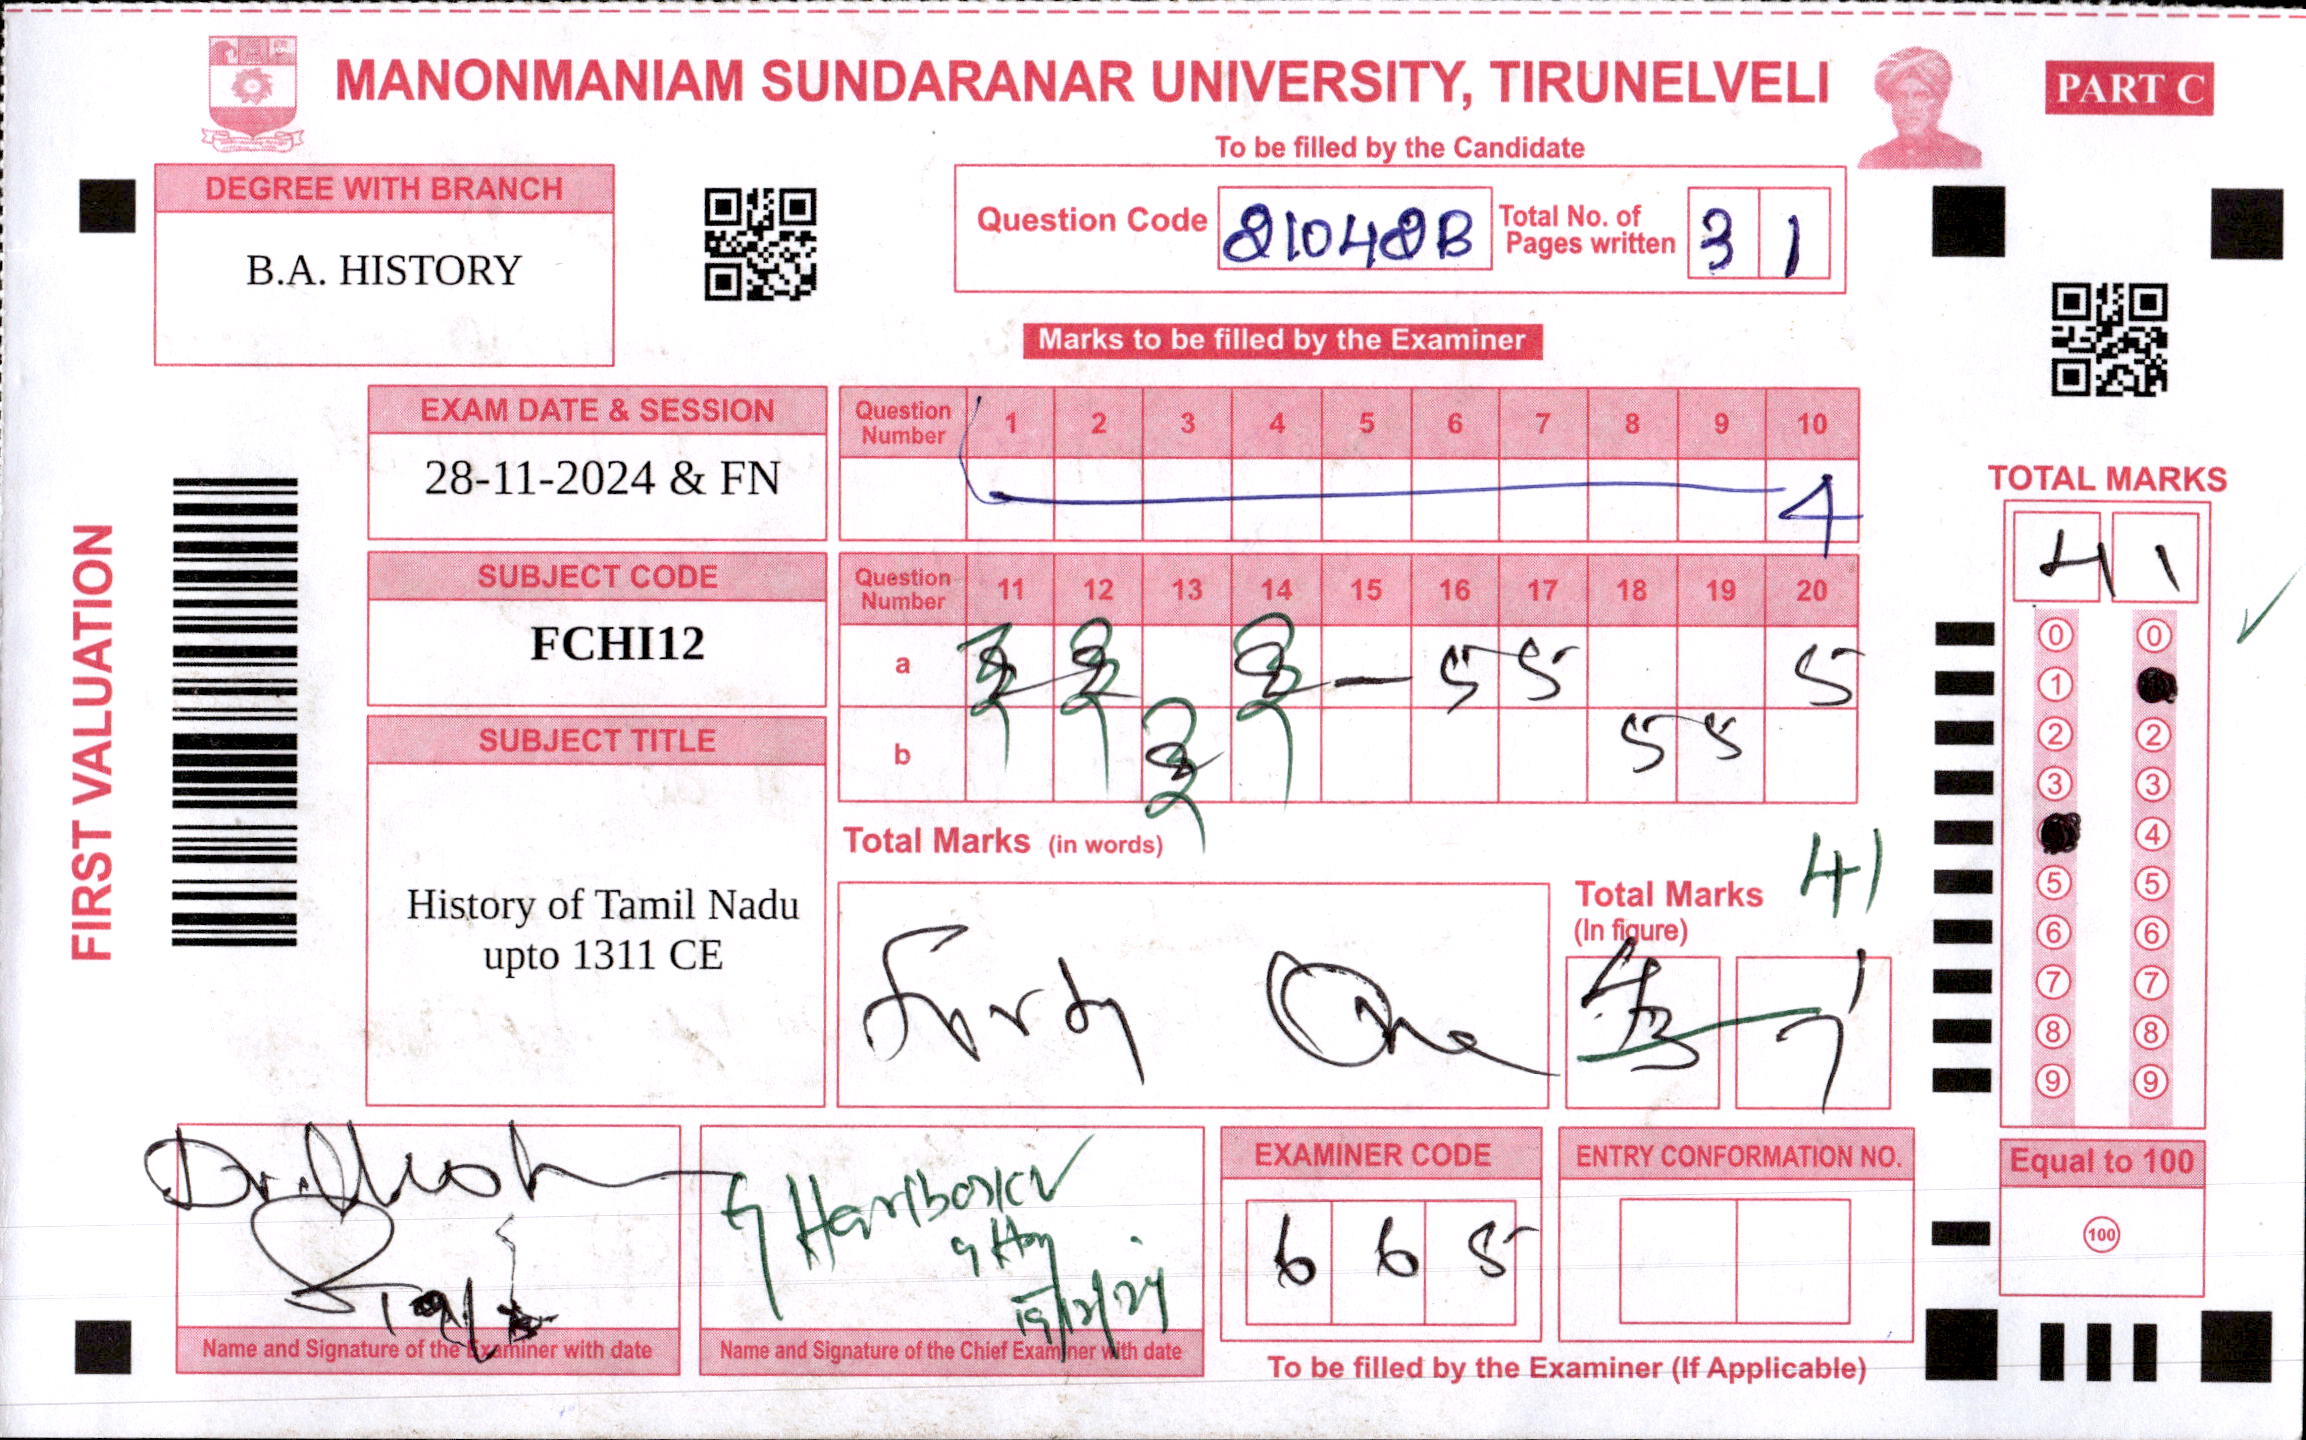 MANONMANIAM SUNDARANAR UNIVERSITY, TIRUNELVELI
PART C
To be filled by the Candidate
DEGREE WITH BRANCH
B.A. HISTORY
Question Code 21048B
Total No. of
Pages written 31
Marks to be filled by the Examiner
EXAM DATE & SESSION
28-11-2024 & FN
Question Number 1 2 3 4 5 6 7 8 9 10
4
SUBJECT CODE
FCHI12
Question Number 11 12 13 14 15 16 17 18 19 20
a — 5 5 5
b 5 5
SUBJECT TITLE
History of Tamil Nadu
upto 1311 CE
FIRST VALUATION
Total Marks (in words)
Forty One
Total Marks
(In figure)
41
TOTAL MARKS
41
0 0
1
2 2
3 3
4
5 5
6 6
7 7
8 8
9 9
Equal to 100
100
Name and Signature of the Examiner with date
19/12/24
Name and Signature of the Chief Examiner with date
EXAMINER CODE
665
ENTRY CONFORMATION NO.
To be filled by the Examiner (If Applicable)